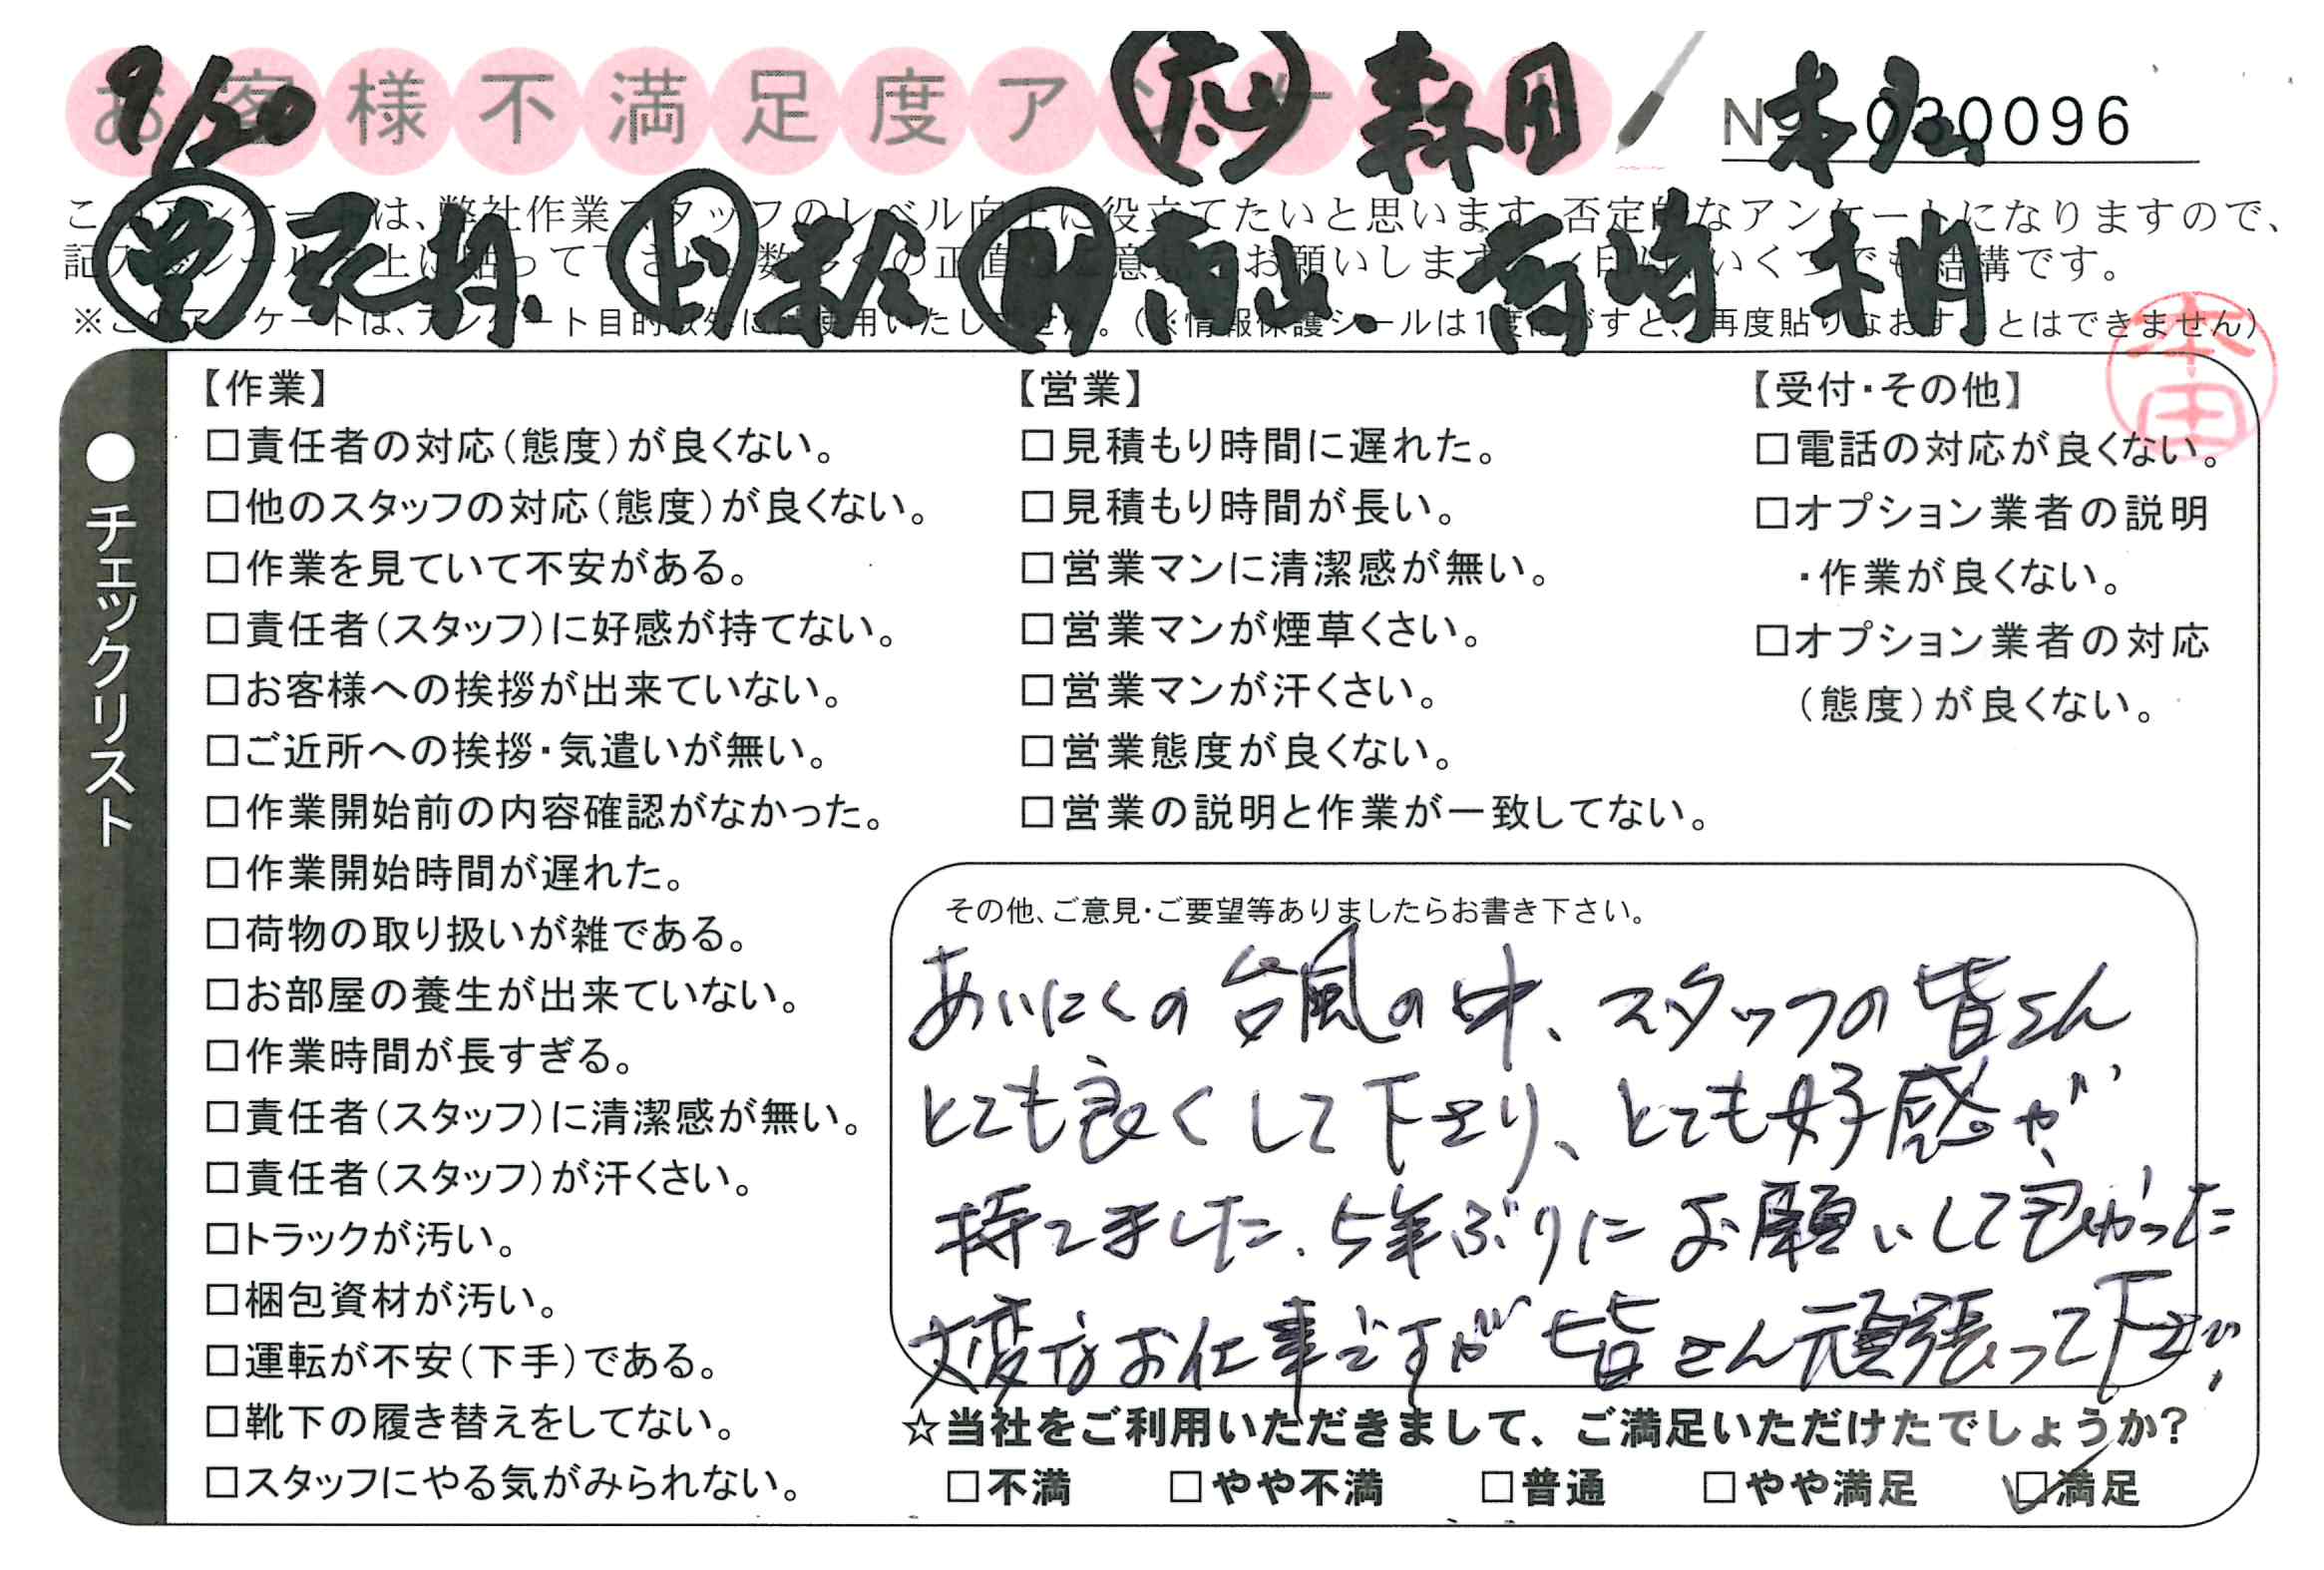 お客様不満足度アンケート
9/20
森田
№ 030096
このアンケートは、弊社作業スタッフのレベル向上に役立てたいと思います。否定的なアンケートになりますので、
記入後シールを上に貼って下さい。数多くの正直なご意見をお願いします。
※このアンケートは、アンケート目的以外には使用いたしません。(※情報保護シールは1度はがすと、再度貼りなおすことはできません)
本田
●チェックリスト
【作業】
□責任者の対応(態度)が良くない。
□他のスタッフの対応(態度)が良くない。
□作業を見ていて不安がある。
□責任者(スタッフ)に好感が持てない。
□お客様への挨拶が出来ていない。
□ご近所への挨拶・気遣いが無い。
□作業開始前の内容確認がなかった。
□作業開始時間が遅れた。
□荷物の取り扱いが雑である。
□お部屋の養生が出来ていない。
□作業時間が長すぎる。
□責任者(スタッフ)に清潔感が無い。
□責任者(スタッフ)が汗くさい。
□トラックが汚い。
□梱包資材が汚い。
□運転が不安(下手)である。
□靴下の履き替えをしてない。
□スタッフにやる気がみられない。
【営業】
□見積もり時間に遅れた。
□見積もり時間が長い。
□営業マンに清潔感が無い。
□営業マンが煙草くさい。
□営業マンが汗くさい。
□営業態度が良くない。
□営業の説明と作業が一致してない。
【受付・その他】
□電話の対応が良くない。
□オプション業者の説明
・作業が良くない。
□オプション業者の対応
(態度)が良くない。
その他、ご意見・ご要望等ありましたらお書き下さい。
あいにくの台風の中、スタッフの皆さん
とても良くして下さり、とても好感が
持てました。5年ぶりにお願いして良かった
大変なお仕事ですが皆さん頑張って下さい
☆当社をご利用いただきまして、ご満足いただけたでしょうか?
□不満 □やや不満 □普通 □やや満足 ☑満足